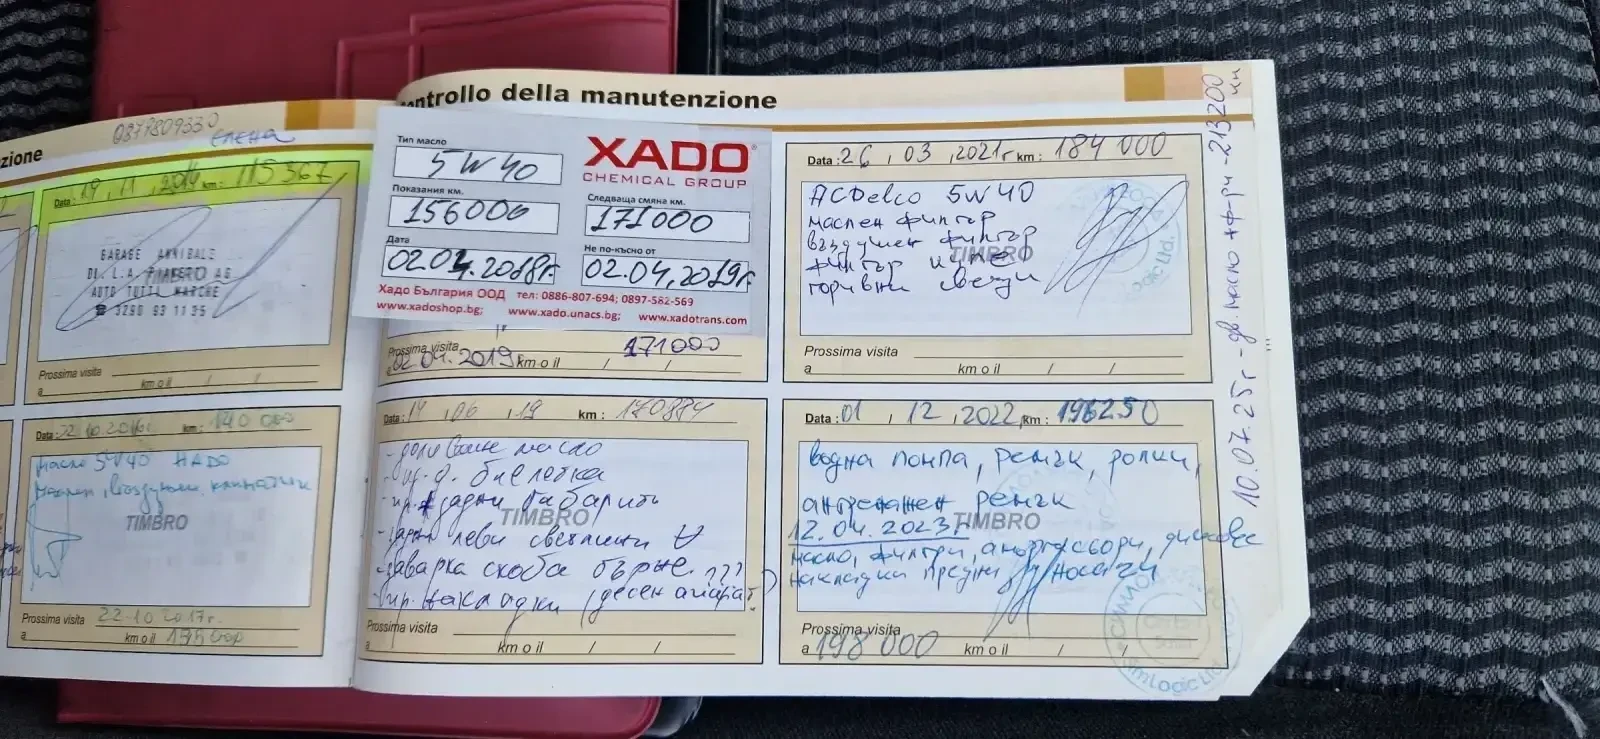 zione
0877809330
Елена
Data: 19, 11, 2014 km: 115367
GARAGE ANNIBALE
DI L.A. PIANERO AG
TIMBRO
AUTO TUTTE MARCHE
☎ 3290 93 11 35
Prossima visita
a km o il / /
Data: 22.10.2016г. km: 140 000
Масло 5W40 ХАДО
маслен, въздушен, климатик
TIMBRO
Prossima visita 22.10.2017г.
a km o il
controllo della manutenzione
Тип масло
5W40
XADO
CHEMICAL GROUP
Показания км.
156006
Следваща смяна км.
171000
Дата
02.04.2018г.
Не по-късно от
02.04.2019г.
Хадо България ООД тел: 0886-807-694; 0897-582-569
www.xadoshop.bg; www.xado.unacs.bg; www.xadotrans.com
Prossima visita 171000
a 02.04.2019г. km o il / /
Data: 14, 06, 19 km: 170884
- доливане масло
биелетка
задни габарити
TIMBRO
- задни леви светлини
- заварка скоба бърне ???
- пр. накладки (десен апарат
Prossima visita
a km o il / /
Data: 26, 03, 2021г km: 184 000
ACDelco 5W40
маслен филтър
въздушен филтър
TIMBRO
филтър купе
горивни свещи
Prossima visita
a km o il / /
Data: 01, 12, 2022 km: 196250
водна помпа, ремък, ролки,
ангренажен ремък
12.04.2023г.
TIMBRO
масло, филтри, амортисьори, дискове
накладки предни, носачи
Prossima visita
a 198 000 km o il / /
SimLogic Ltd.
10.07.25г - дв. масло + ф-ри - 213200 км